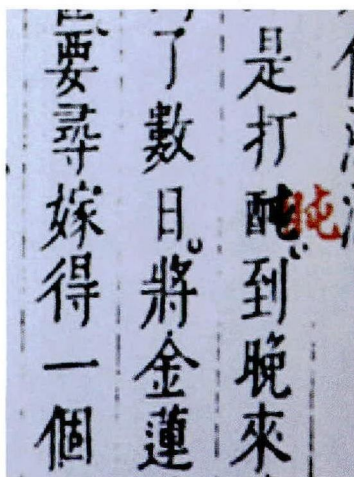 是打盹到晚來
了數日將金蓮
要尋嫁得一個